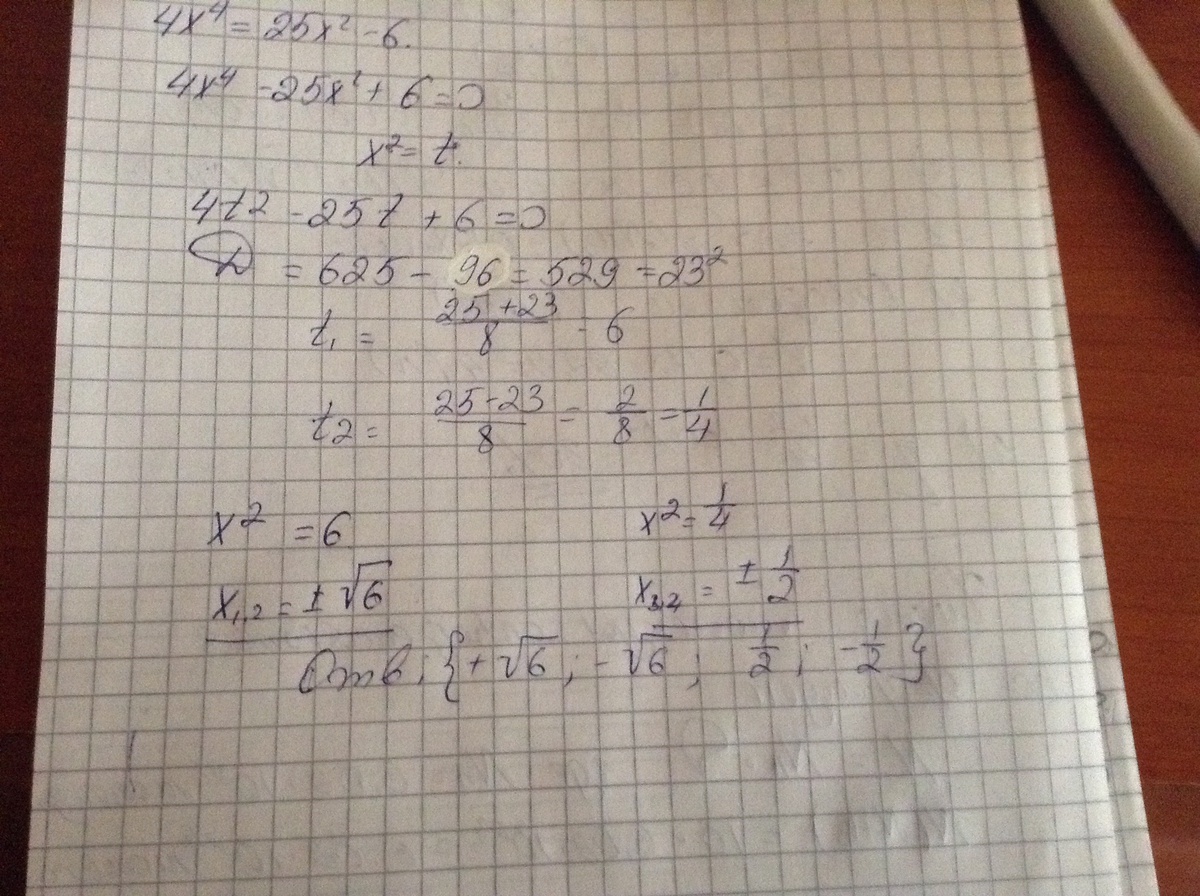 4x⁴ = 25x² - 6.
4x⁴ - 25x² + 6 = 0
x² = t.
4t² - 25t + 6 = 0
D = 625 - 96 = 529 = 23²
t₁ = (25 + 23)/8 = 6
t₂ = (25 - 23)/8 = 2/8 = 1/4
x² = 6 x² = 1/4
x₁,₂ = ± √6 x₃,₄ = ± 1/2
Отв: {+√6; -√6; 1/2; -1/2}